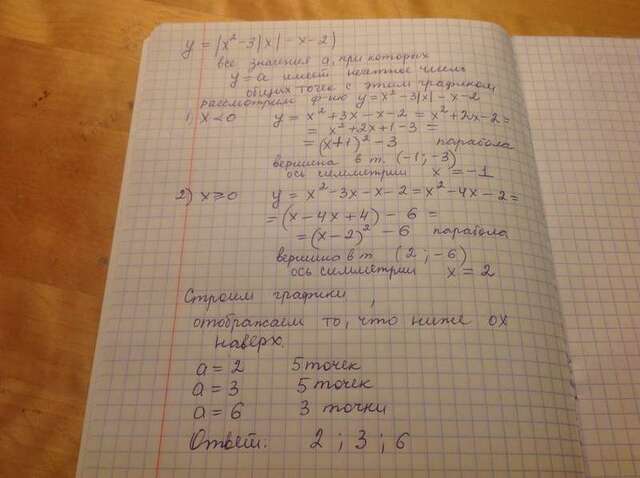 y = |x² - 3|x| - x - 2|
все значения a, при которых
y = a имеет нечетное число
общих точек с этим графиком
рассмотрим ф-ию y = x² - 3|x| - x - 2
1) x < 0 y = x² + 3x - x - 2 = x² + 2x - 2 =
= x² + 2x + 1 - 3 =
= (x+1)² - 3 парабола
вершина в т. (-1; -3)
ось симметрии x = -1
2) x ≥ 0 y = x² - 3x - x - 2 = x² - 4x - 2 =
= (x - 4x + 4) - 6 =
= (x - 2)² - 6 парабола
вершина в т (2 ; -6)
ось симметрии x = 2
Строим графики,
отображаем то, что ниже OX
наверх.
a = 2 5 точек
a = 3 5 точек
a = 6 3 точки
Ответ: 2 ; 3 ; 6